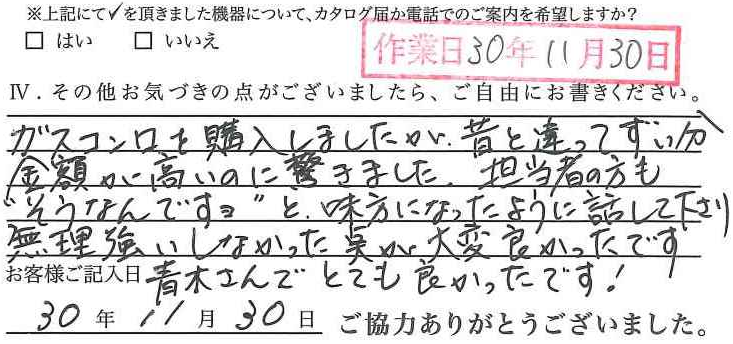 ※上記にて✓を頂きました機器について、カタログ届か電話でのご案内を希望しますか?
□ はい □ いいえ
作業日30年11月30日
Ⅳ．その他お気づきの点がございましたら、ご自由にお書きください。
ガスコンロを購入しましたが、昔と違ってずい分
金額が高いのに驚きました。担当者の方も
"そうなんですョ"と、味方になったように話して下さり
無理強いしなかった点が大変良かったです
お客様ご記入日 青木さんでとても良かったです!
30年 11月 30日 ご協力ありがとうございました。